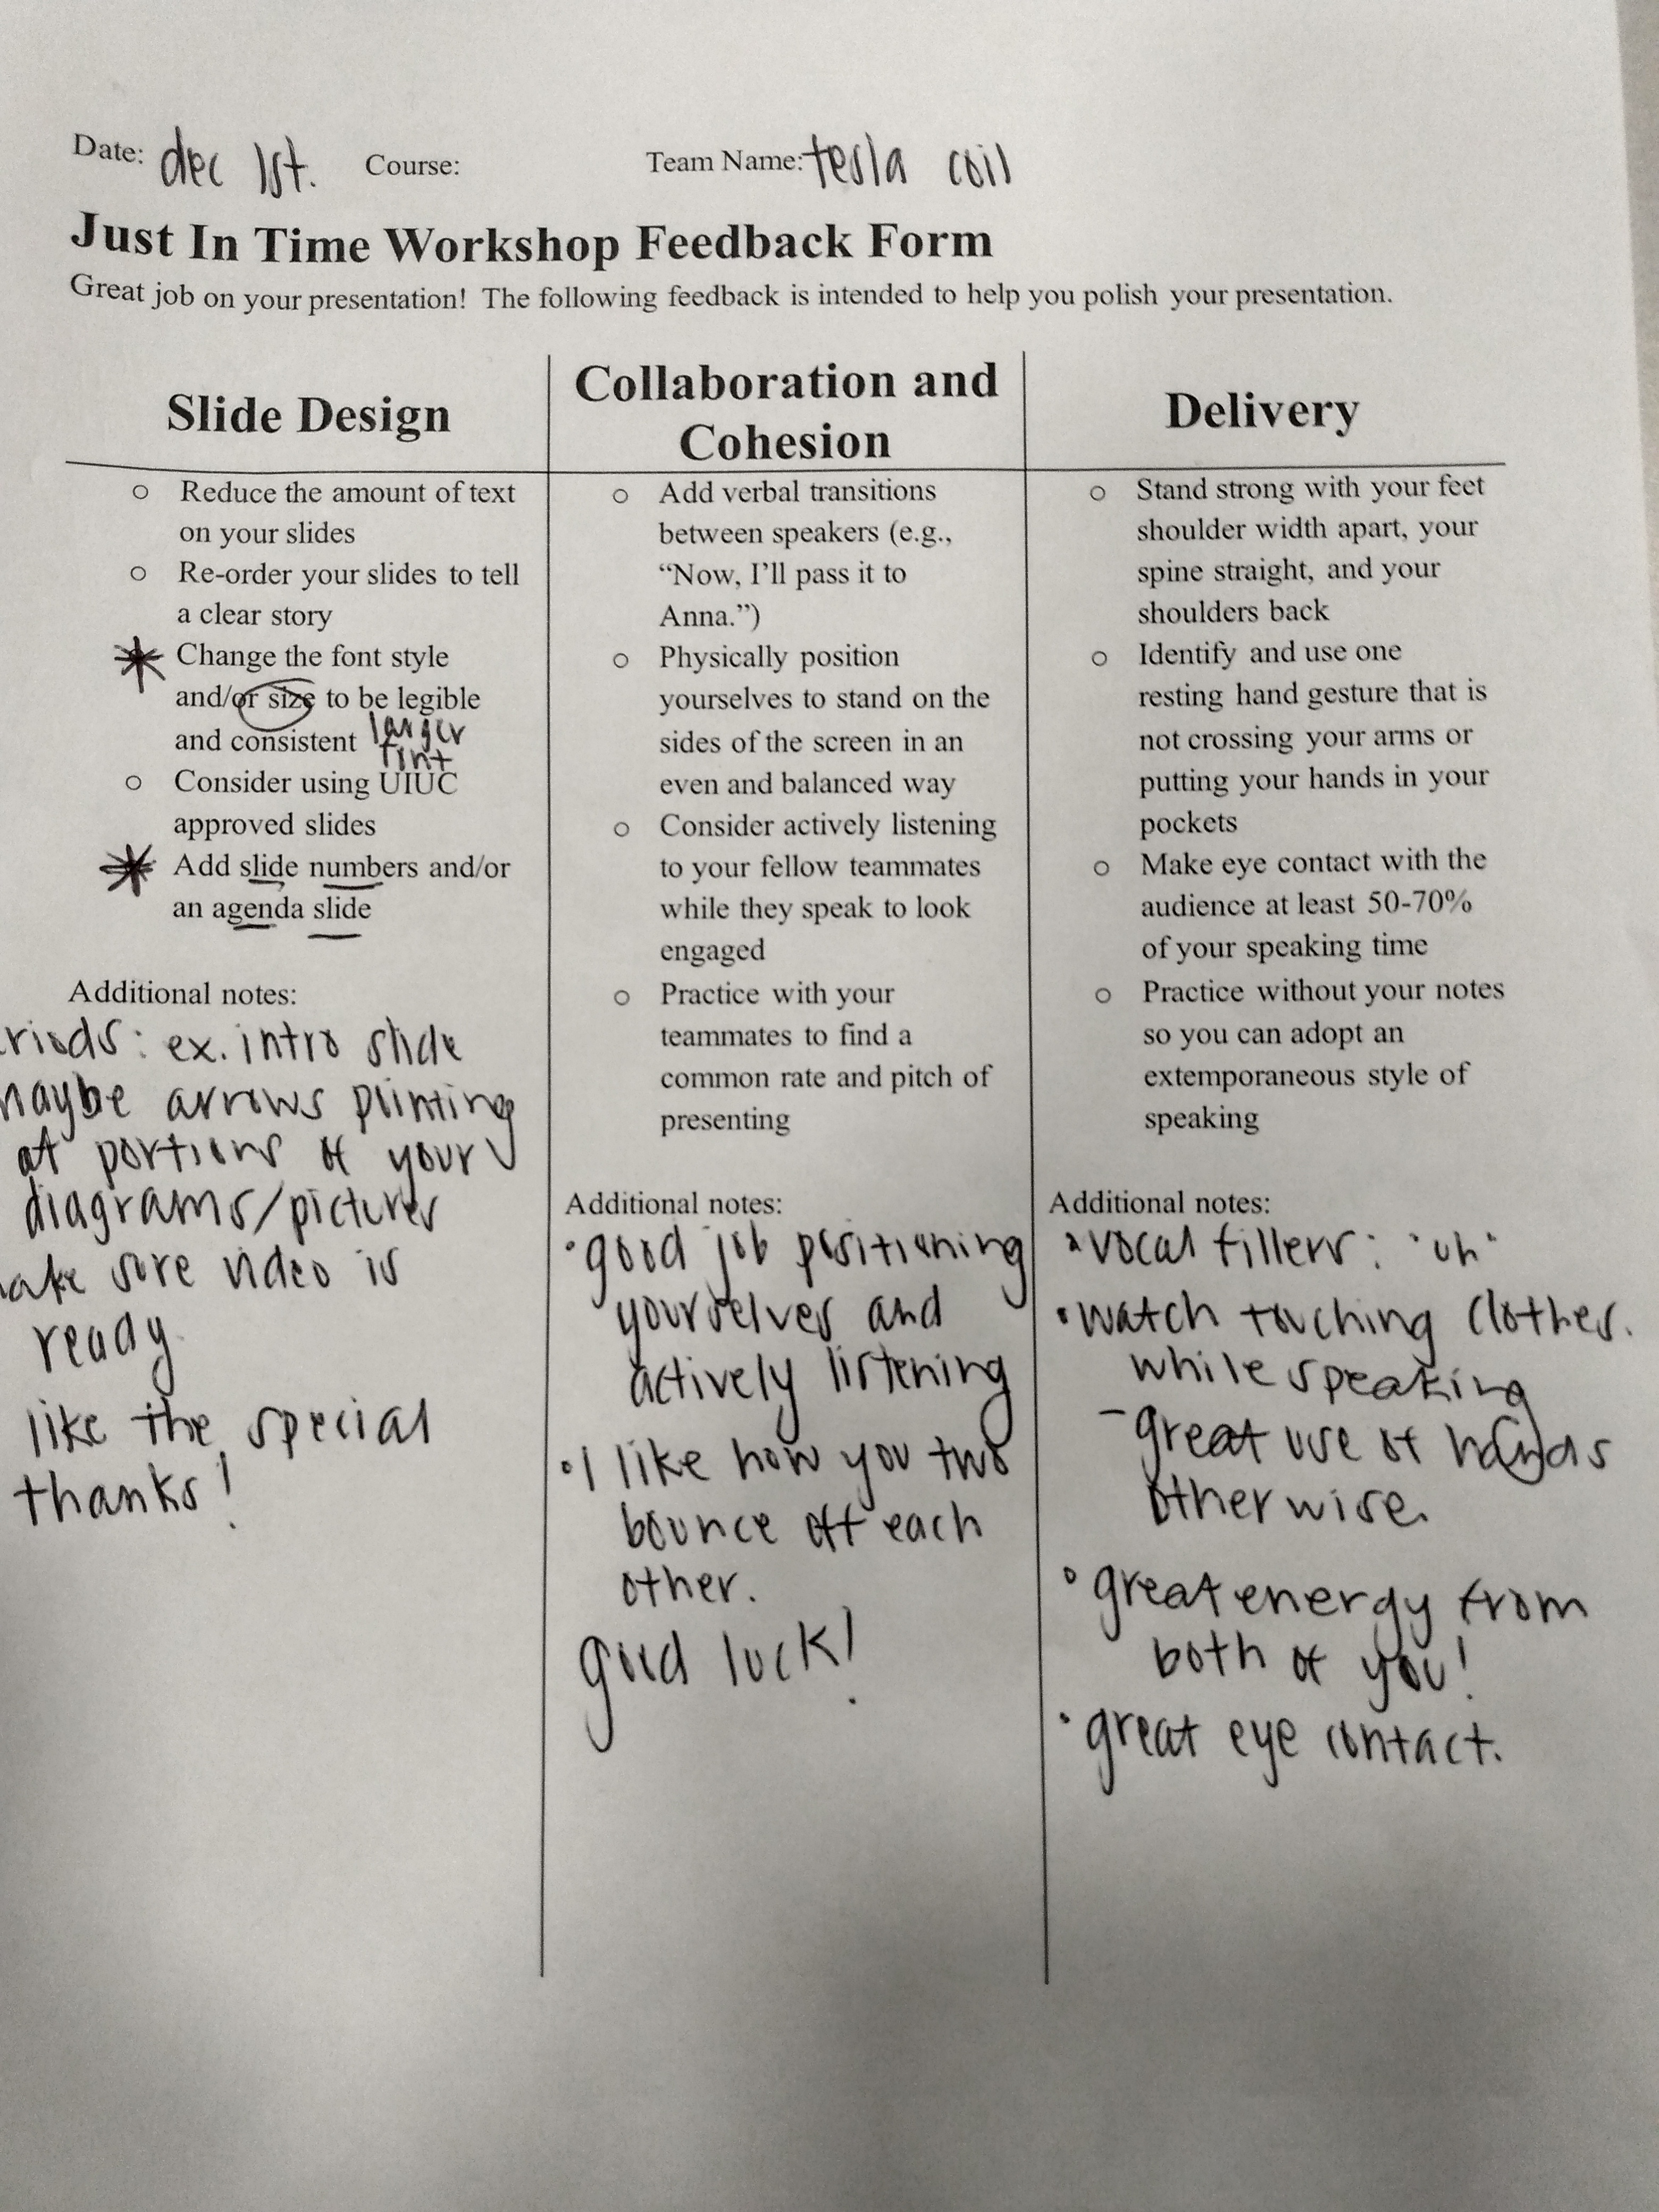 Date: dec 1st. Course: Team Name: tesla coil
Just In Time Workshop Feedback Form
Great job on your presentation! The following feedback is intended to help you polish your presentation.
Slide Design
○ Reduce the amount of text
on your slides
○ Re-order your slides to tell
a clear story
Change the font style
and/or size to be legible
and consistent larger
font
○ Consider using UIUC
approved slides
Add slide numbers and/or
an agenda slide
Additional notes:
ex. intro slide
maybe arrows pointing
at portions of your
diagrams/pictures
sure video is
ready
like the special
thanks!
Collaboration and
Cohesion
○ Add verbal transitions
between speakers (e.g.,
“Now, I’ll pass it to
Anna.”)
○ Physically position
yourselves to stand on the
sides of the screen in an
even and balanced way
○ Consider actively listening
to your fellow teammates
while they speak to look
engaged
○ Practice with your
teammates to find a
common rate and pitch of
presenting
Additional notes:
• good job positioning
yourselves and
actively listening
• I like how you two
bounce off each
other.
good luck!
Delivery
○ Stand strong with your feet
shoulder width apart, your
spine straight, and your
shoulders back
○ Identify and use one
resting hand gesture that is
not crossing your arms or
putting your hands in your
pockets
○ Make eye contact with the
audience at least 50-70%
of your speaking time
○ Practice without your notes
so you can adopt an
extemporaneous style of
speaking
Additional notes:
• vocal fillers: "uh"
• watch touching clothes.
while speaking
- great use of hands
otherwise.
• great energy from
both of you!
• great eye contact.